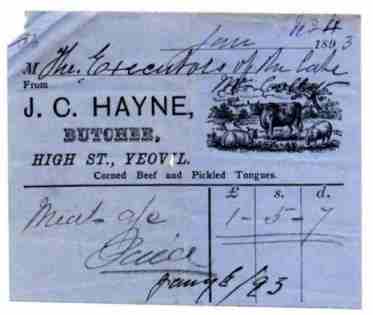 Jan 1893
M The Executors of the late
From Mr
J. C. HAYNE,
BUTCHER,
HIGH ST., YEOVIL.
Corned Beef and Pickled Tongues.
£ s. d.
Meat a/c 1 - 5 - 7
Paid
Jany 6/93